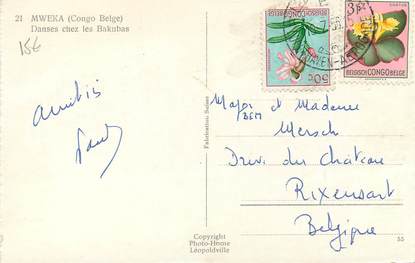 21 MWEKA (Congo Belge)
Danses chez les Bakubas
15€
Amitiés
50c
BELGISCH CONGO BELGE
Major et Madame
BEM
Mersch
Drève du Château
Rixensart
Belgique
Fabrication Suisse
Copyright
Photo-Home
Léopoldville
55